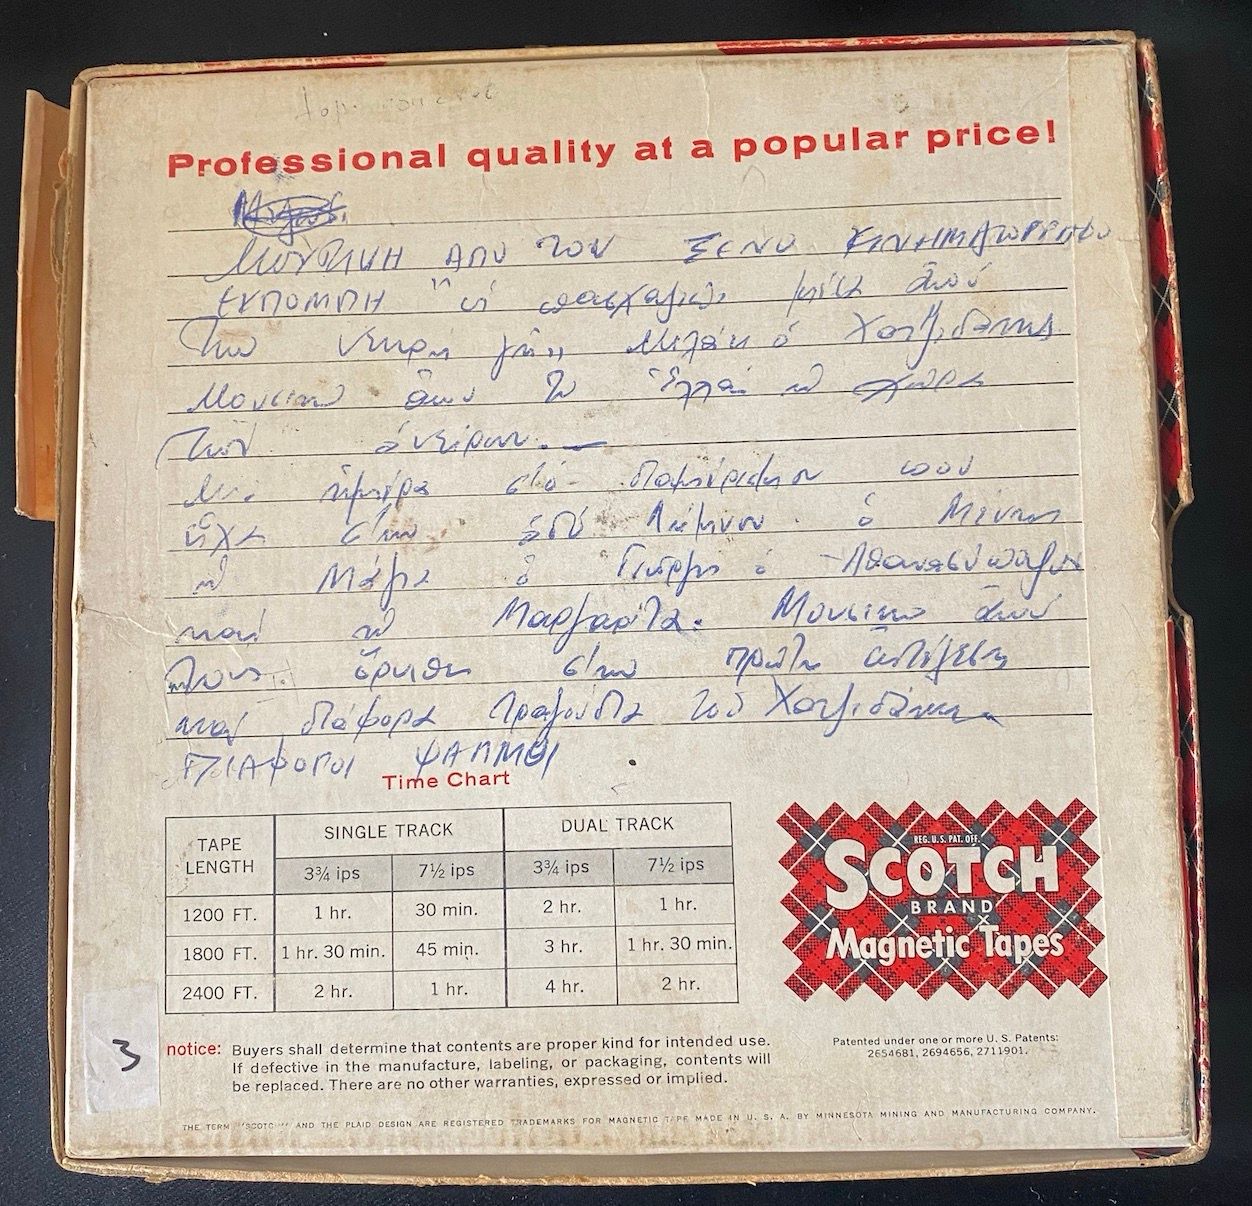 Professional quality at a popular price!
ΜΟΥΣΙΚΗ ΑΠΟ ΤΟΝ ΞΕΝΟ ΚΙΝΗΜΑΤΟΓΡΑΦΟ
ΕΚΠΟΜΠΗ "οἱ πασχαλιές μέσα ἀπό
τήν νεκρή γῆ,, Μιλάει ὁ Χατζιδάκις
Μουσική ἀπό τό Ἑλλάς ἡ χώρα
τῶν ὀνείρων.
Μιά ἡμέρα στό διαμέρισμα πού
εἶχα στήν ὁδό Λήμνου. ὁ
ἡ ὁ Γιώργος ὁ Ἀθανασόπουλος
καί ἡ Μαργαρίτα. Μουσική ἀπό
τούς ὄρνιθες στήν πρώτη ἐκτέλεση
καί διάφορα τραγούδια τοῦ Χατζιδάκι
ΔΙΑΦΟΡΟΙ ΨΑΛΜΟΙ
Time Chart
TAPE LENGTH SINGLE TRACK DUAL TRACK
3¾ ips 7½ ips 3¾ ips 7½ ips
1200 FT. 1 hr. 30 min. 2 hr. 1 hr.
1800 FT. 1 hr. 30 min. 45 min. 3 hr. 1 hr. 30 min.
2400 FT. 2 hr. 1 hr. 4 hr. 2 hr.
REG. U.S. PAT. OFF.
SCOTCH
BRAND
Magnetic Tapes
3
notice: Buyers shall determine that contents are proper kind for intended use.
If defective in the manufacture, labeling, or packaging, contents will
be replaced. There are no other warranties, expressed or implied.
Patented under one or more U. S. Patents:
2654681, 2694656, 2711901.
THE TERM "SCOTCH" AND THE PLAID DESIGN ARE REGISTERED TRADEMARKS FOR MAGNETIC TAPE MADE IN U. S. A. BY MINNESOTA MINING AND MANUFACTURING COMPANY.